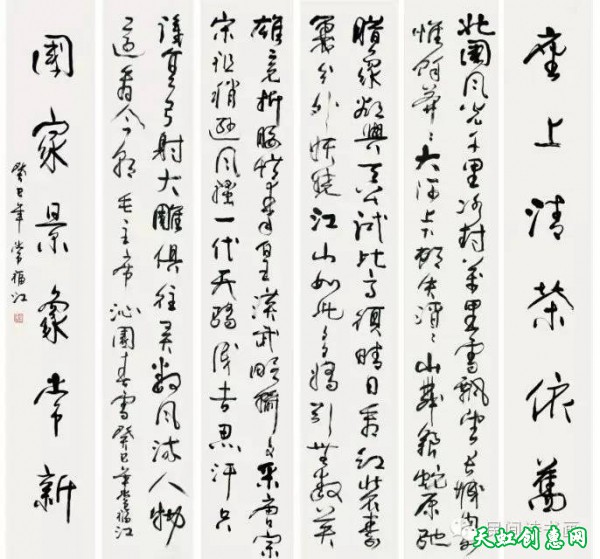 座上清茶依舊
北國風光千里冰封萬里雪飘望長城内外
惟餘莽莽大河上下頓失滔滔山舞銀蛇原驰
腊象欲與天公試比高須晴日看红装素
裹分外妖娆江山如此多嬌引無数英
雄竞折腰惜秦皇漢武略输文采唐宗
宋祖稍逊風騷一代天骄成吉思汗只
識弯弓射大雕俱往矣数風流人物
还看今朝 毛主席沁園春雪癸巳年常福江
國家景象常新
癸巳年 常福江
天虹创意网